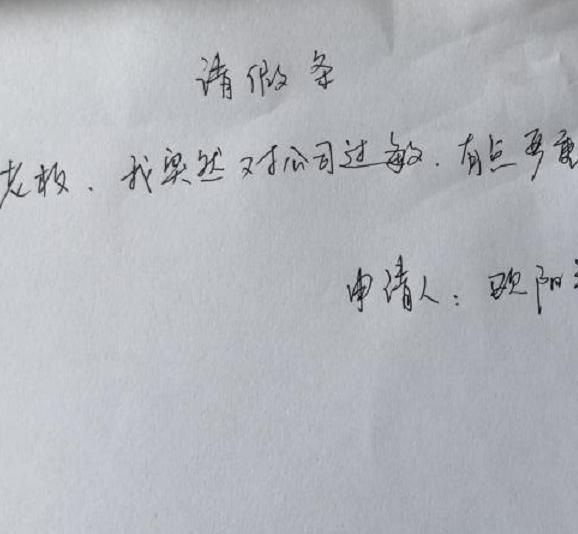 请假条
老板、我突然对公司过敏.有点严重
申请人：欧阳